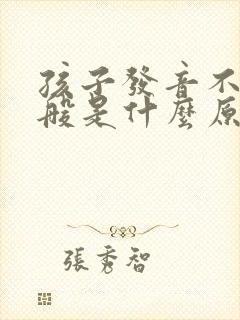 孩子發音不
般是什麼原
張秀智